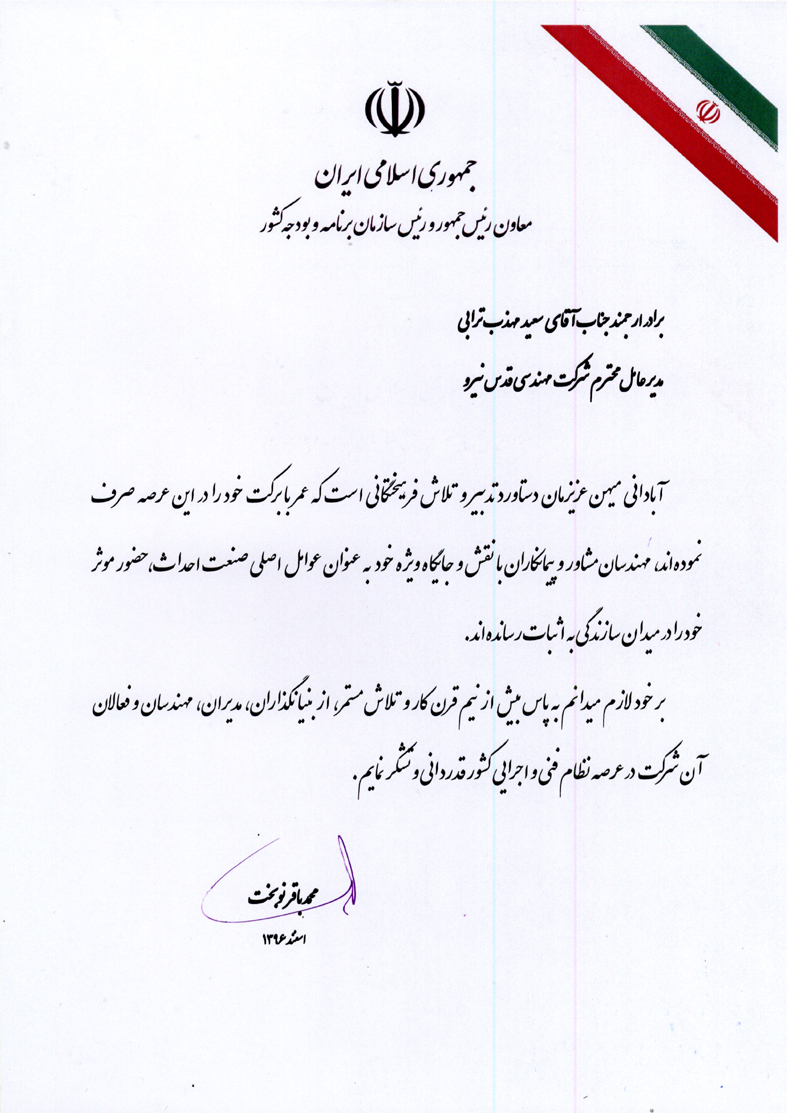 جمهوری اسلامی ایران
معاون رئیس جمهور و رئیس سازمان برنامه و بودجه کشور
برادر ارجمند جناب آقای سعید مهذب ترابی
مدیر عامل محترم شرکت مهندسی قدس نیرو
آبادانی میهن عزیزمان دستاورد تدبیر و تلاش فرهیختگانی است که عمر با برکت خود را در این عرصه صرف
نموده‌اند، مهندسان مشاور و پیمانکاران با نقش و جایگاه ویژه خود به عنوان عوامل اصلی صنعت احداث، حضور موثر
خود را در میدان سازندگی به اثبات رسانده اند.
بر خود لازم میدانم به پاس بیش از نیم قرن کار و تلاش مستمر، از بنیانگذاران، مدیران، مهندسان و فعالان
آن شرکت در عرصه نظام فنی و اجرایی کشور قدردانی و تشکر نمایم.
محمد باقر نوبخت
اسفند ۱۳۹۶